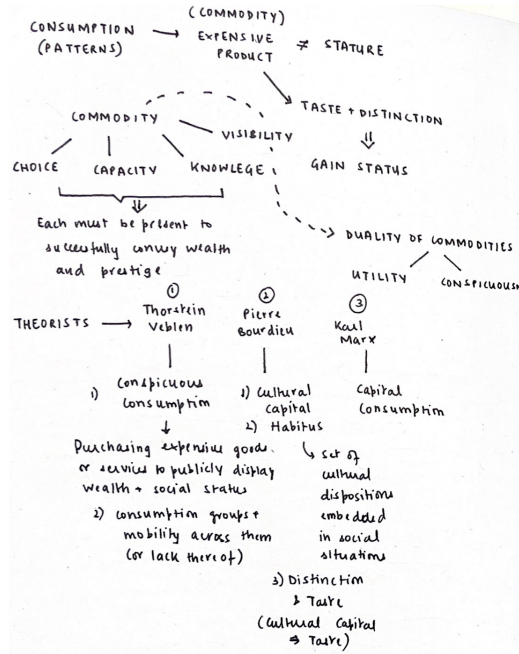 (COMMODITY)
CONSUMPTION → EXPENSIVE ≠ STATURE
(PATTERNS) PRODUCT
TASTE + DISTINCTION
⇓
GAIN STATUS
COMMODITY
VISIBILITY
CHOICE CAPACITY KNOWLEGE
⇓
Each must be present to
successfully convey wealth
and prestige
DUALITY OF COMMODITIES
UTILITY CONSPICUOUSN
THEORISTS →
① Thorstein
Veblen
1) Conspicuous
Consumption
↓
Purchasing expensive goods
or services to publicly display
wealth + social status
2) consumption groups +
mobility across them
(or lack thereof)
② Pierre
Bourdieu
1) Cultural
Capital
2) Habitus
↳ set of
cultural
dispositions
embedded
in social
situations
3) Distinction
& Taste
(Cultural Capital
⇒ Taste)
③ Karl
Marx
Capital
Consumption